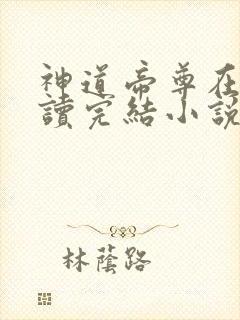 神道帝尊在
讀完結小說
林蔭路